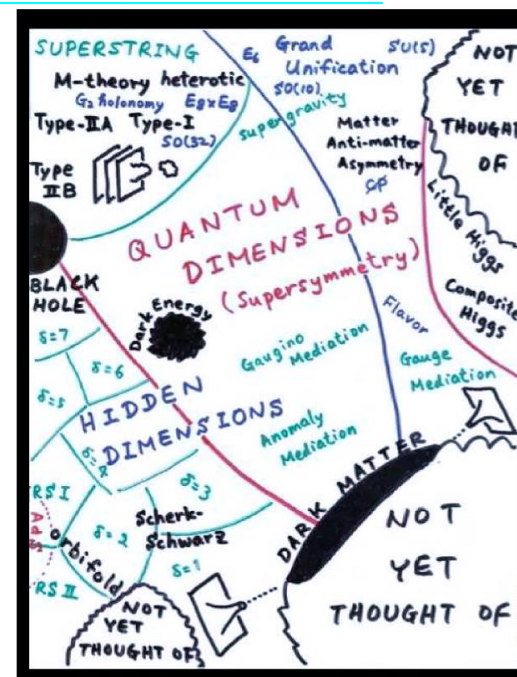 SUPERSTRING
M-theory heterotic
G₂ holonomy E8xE8
Type-IIA Type-I
SO(32)
Type
IIB
E₆ Grand SU(5)
Unification
SO(10)
supergravity
Matter
Anti-matter
Asymmetry
CP
NOT
YET
THOUGHT
OF
Little Higgs
Composite
Higgs
QUANTUM
DIMENSIONS
(Supersymmetry)
BLACK
HOLE
Dark Energy
Flavor
Gaugino
Mediation
Gauge
Mediation
Anomaly
Mediation
δ=7
δ=6
δ=5
HIDDEN
DIMENSIONS
δ=3
RS I
AdS
orbifold
δ=2
Scherk-
Schwarz
δ=1
RS II
DARK MATTER
NOT
YET
THOUGHT OF
NOT
YET
THOUGHT OF